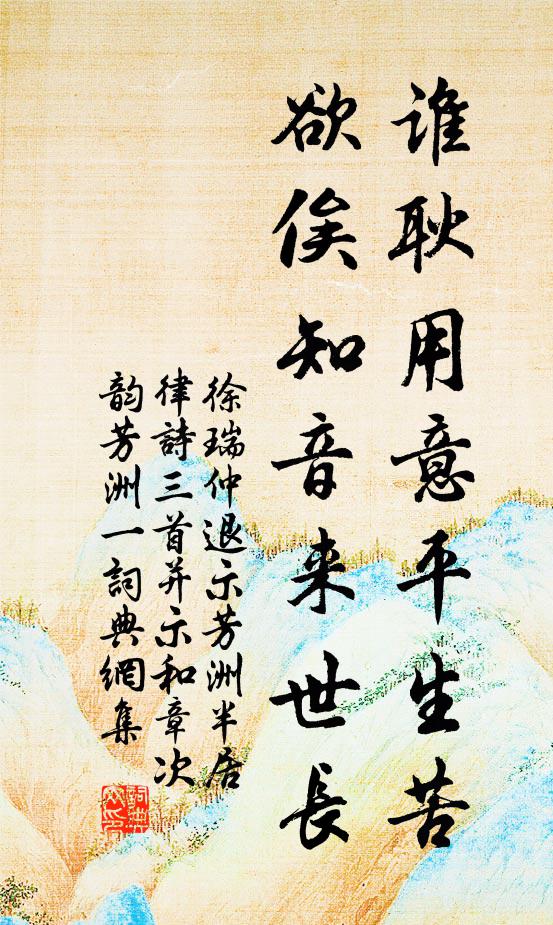 谁耿用意平生苦
欲俟知音来世長
徐瑞仲退示芳洲半居
律詩三首并示和章次
韵芳洲一詞典網集